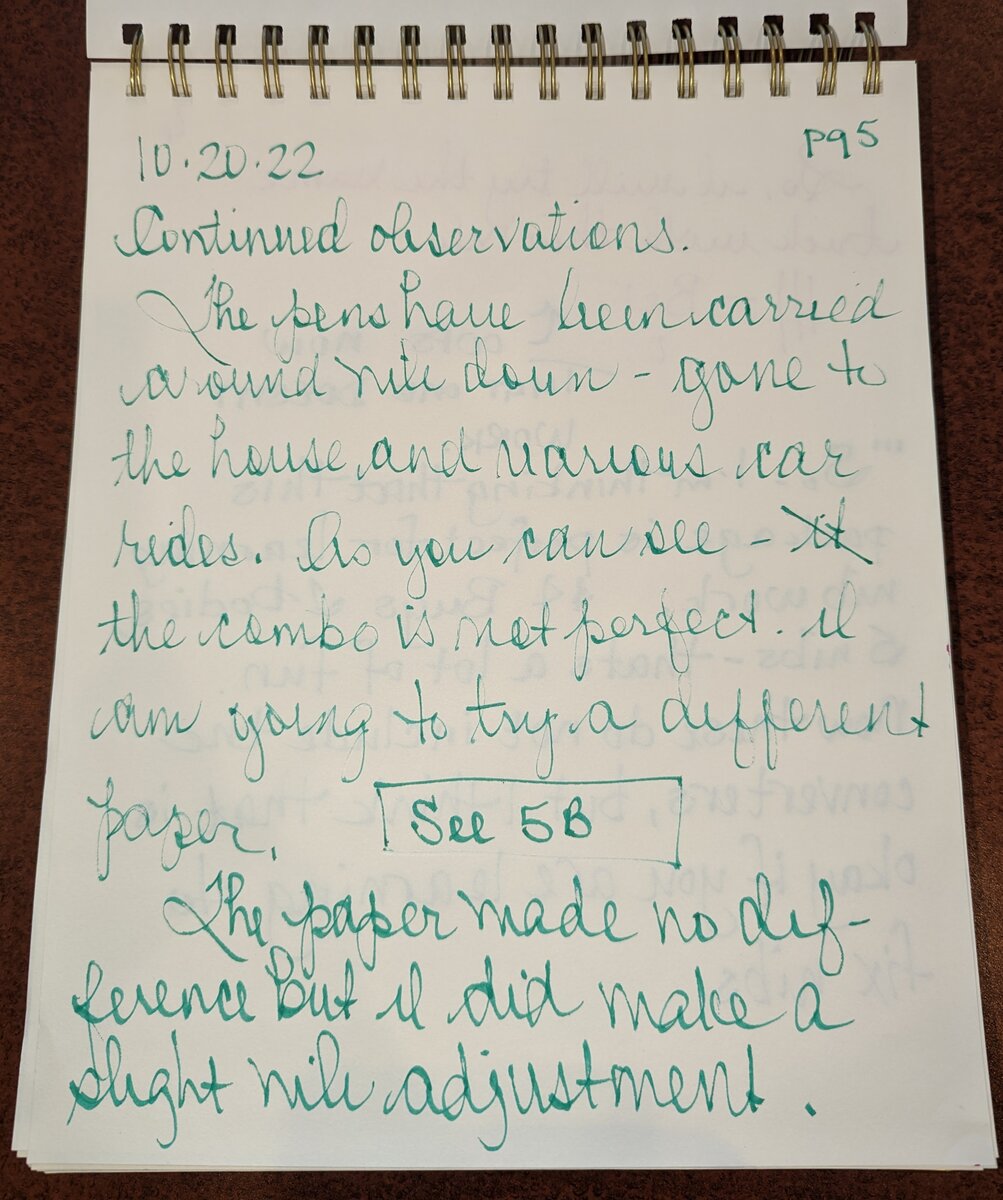 pg5
10.20.22
Continued observations.
The pens have been carried
around nib down - gone to
the house and various car
rides. As you can see - it
the combo is not perfect. I
am going to try a different
paper.
See 5B
The paper made no dif-
ference but I did make a
slight nib adjustment.